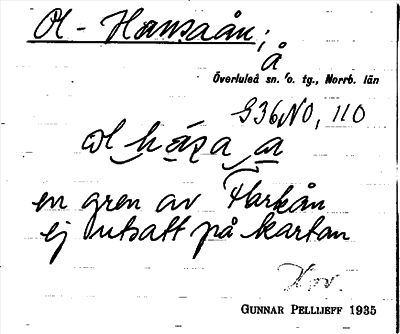 Ol-Hansaån;
å
Överluleå sn. o. tg., Norrb. län
S36NO, 110
en gren av Flarkån
ej utsatt på kartan
GUNNAR PELLIJEFF 1935